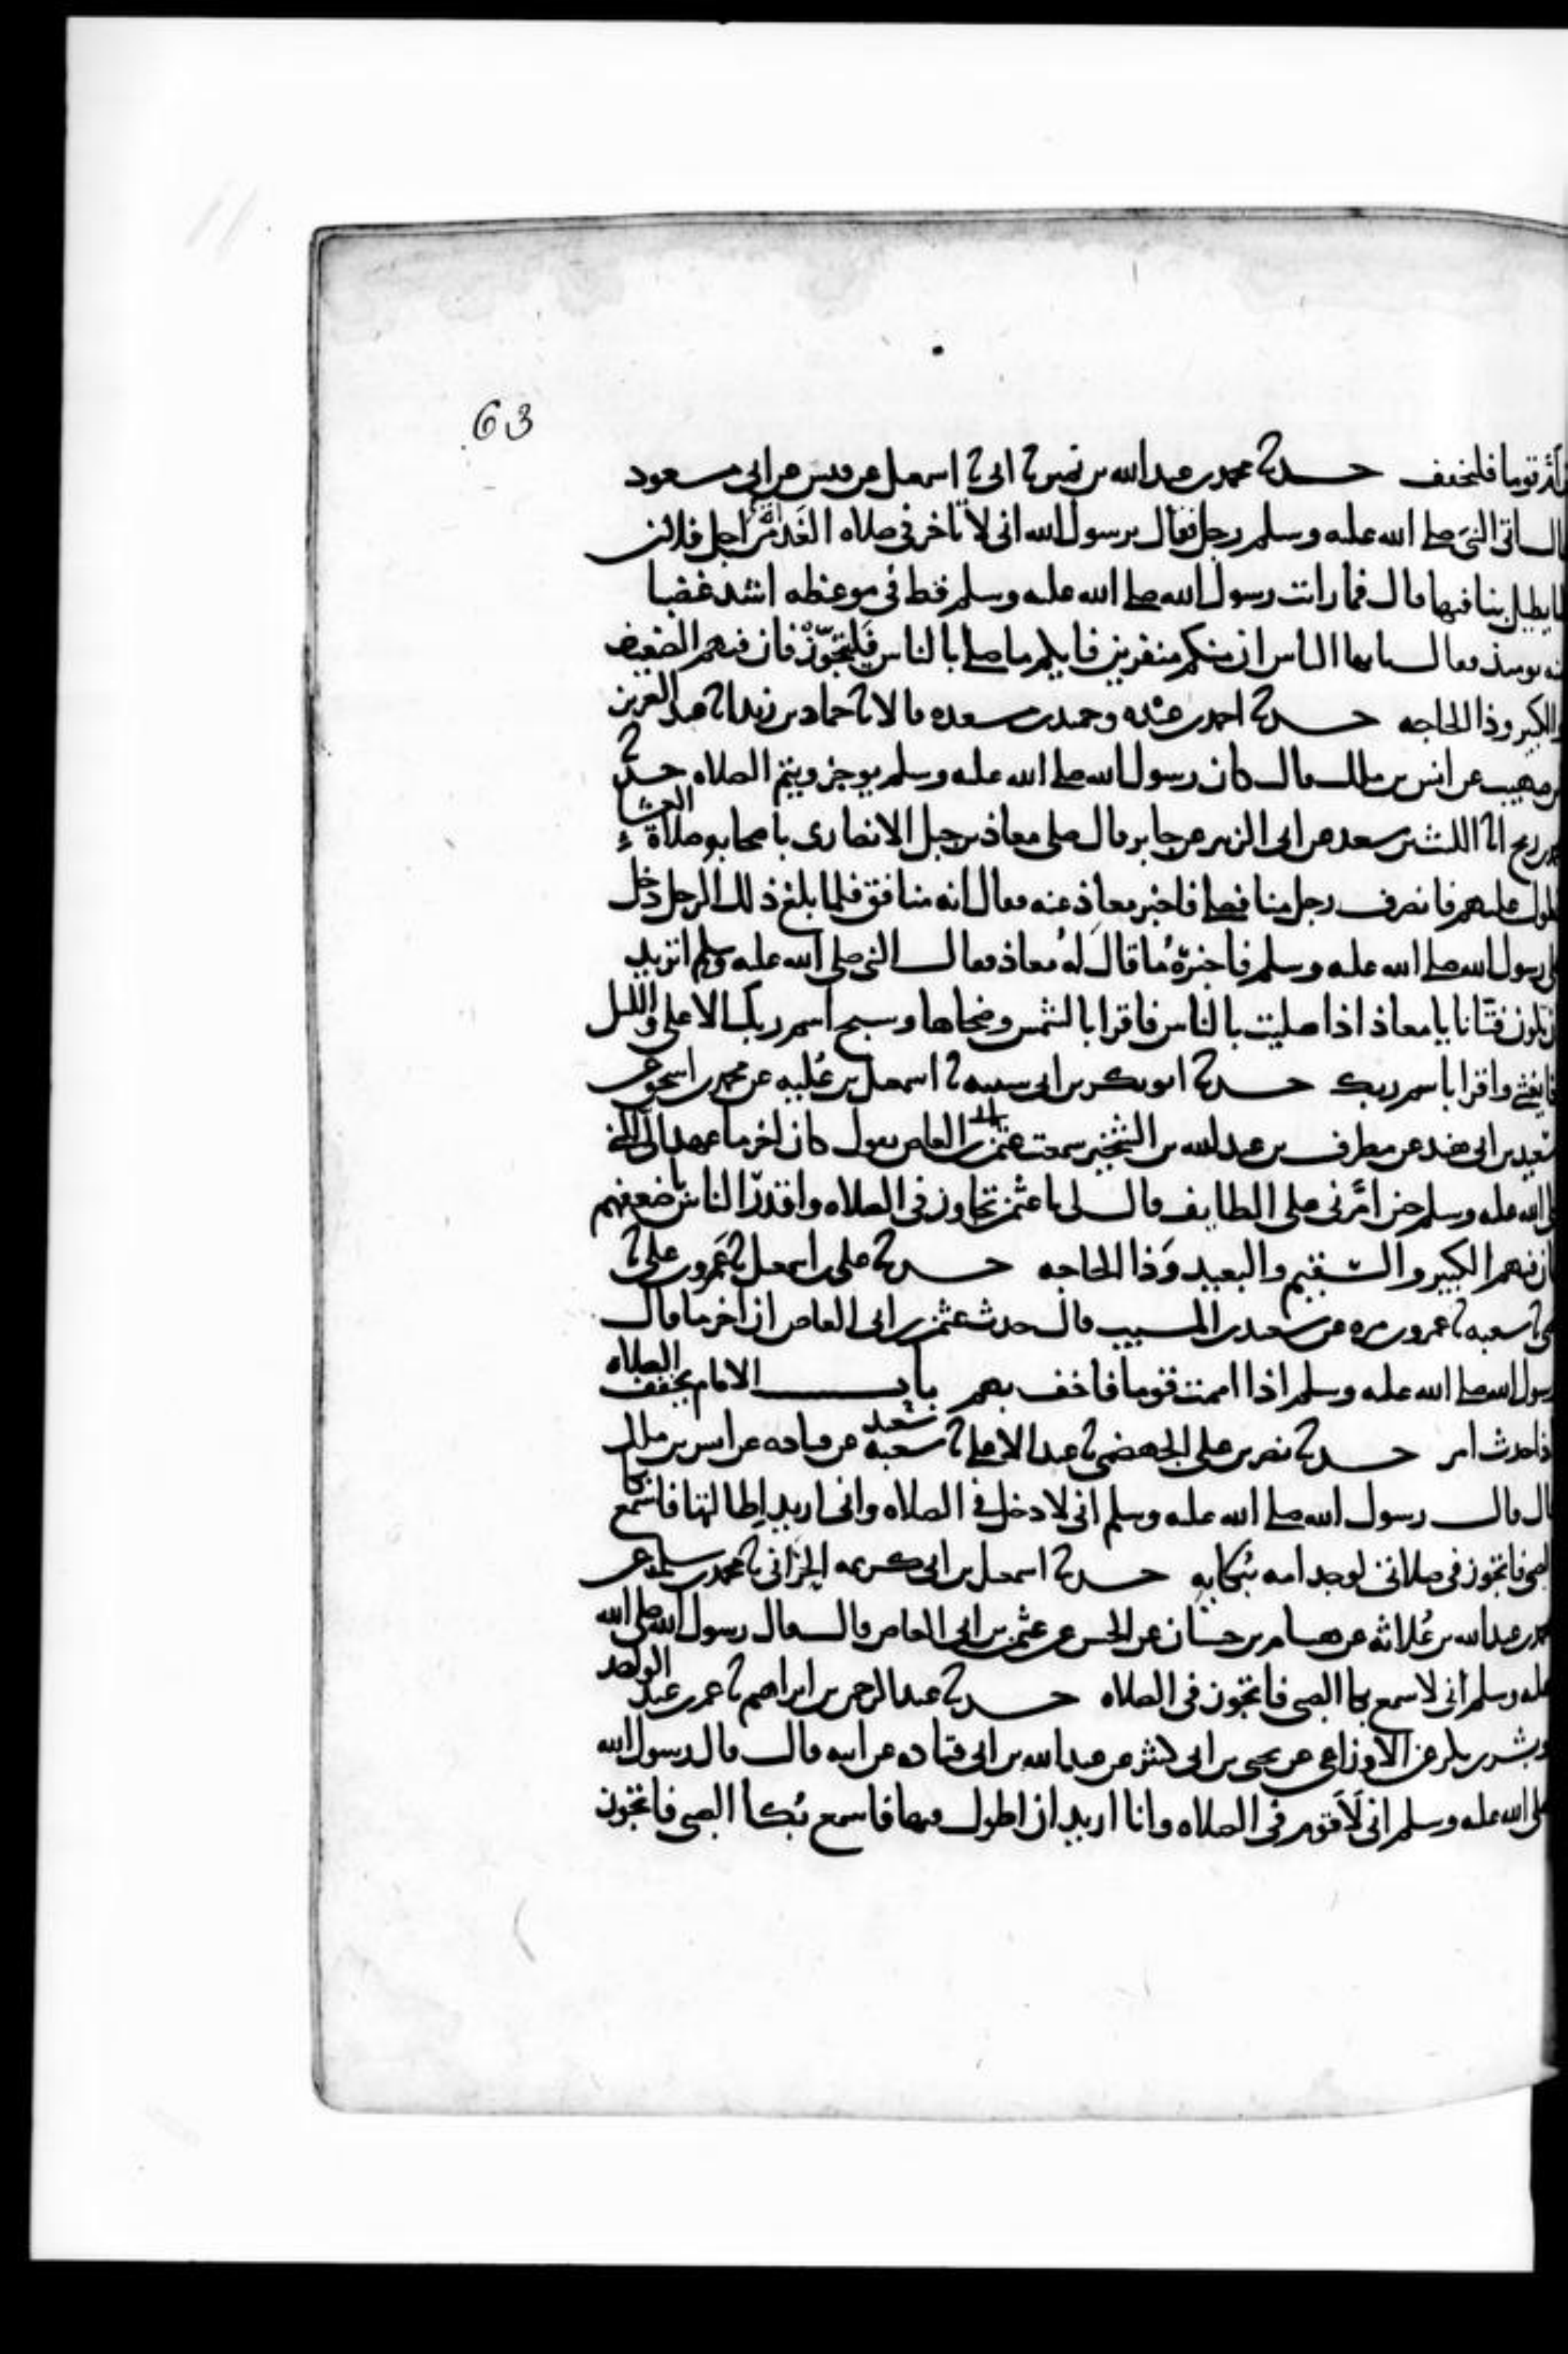 63
قوما فليخفف حدثنا محمد بن عبد الله بن نمير ثنا ابى ثنا اسمعيل عن قيس عن ابى مسعود
اتى النبى صلى الله عليه وسلم رجل فقال يرسول الله انى لاتاخر فى صلاه الغداه من اجل فلان
يطيل بنا فيها قال فما رايت رسول الله صلى الله عليه وسلم قط فى موعظه اشد غضبا
منه يوميذ فقال يايها الناس ان منكم منفرين فايكم ما صلى بالناس فليتجوز فان فيهم الضعيف
والكبير وذا الحاجه حدثنا احمد بن عبده وحميد بن مسعده قالا ثنا حماد بن زيد انا عبد العزيز
بن صهيب عن انس بن ملك قال كان رسول الله صلى الله عليه وسلم يوجز ويتم الصلاه حدثنا
رمح انا الليث بن سعد عن ابى الزبير عن جابر قال صلى معاذ بن جبل الانصارى باصحابه صلاة العشاء
عليهم فانصرف رجل منا فصلى فاخبر معاذ عنه فقال انه منافق فلما بلغ ذلك الرجل دخل
على رسول الله صلى الله عليه وسلم فاخبره ما قال له معاذ فقال النبى صلى الله عليه وسلم اتريد
ان تكون فتانا يا معاذ اذا صليت بالناس فاقرا بالشمس وضحاها وسبح اسم ربك الاعلى والليل
اذا يغشى واقرا باسم ربك حدثنا ابو بكر بن ابى شيبه ثنا اسمعيل بن علية عن محمد بن اسحق عن
سعيد بن ابى هند عن مطرف بن عبد الله بن الشخير سمعت عثمن بن ابى العاص يقول كان اخر ما عهد الى النبى
صلى الله عليه وسلم حين امرنى على الطايف قال لى يا عثمن تجاوز فى الصلاه واقدر الناس باضعفهم
فان فيهم الكبير والسقيم والبعيد وذا الحاجه حدثنا على بن اسمعيل ثنا عمرو بن على ثنا
يحيى ثنا شعبه ثنا عمرو بن مره عن سعيد بن المسيب قال حدث عثمن بن ابى العاص ان اخر ما قال
رسول الله صلى الله عليه وسلم اذا اممت قوما فاخف بهم باب الامام يخفف الصلاه
اذا حدث امر حدثنا نصر بن على الجهضمى ثنا عبد الاعلى ثنا سعيد عن قتاده عن انس بن ملك
قال قال رسول الله صلى الله عليه وسلم انى لادخل فى الصلاه وانى اريد اطالتها فاسمع بكا
الصبى فاتجوز فى صلاتى لوجد امه ببكايه حدثنا اسمعيل بن ابى كريمه الحرانى ثنا محمد بن سلمه عن
محمد بن عبد الله بن علاثه عن هشام بن حسان عن الحسن عن عثمن بن ابى العاص قال قال رسول الله صلى الله
عليه وسلم انى لاسمع بكا الصبى فاتجوز فى الصلاه حدثنا عبد الرحمن بن ابراهيم ثنا عمر بن عبد الواحد
وبشر بن بكر عن الاوزاعى عن يحيى بن ابى كثير عن عبد الله بن ابى قتاده عن ابيه قال قال رسول الله
صلى الله عليه وسلم انى لاقوم فى الصلاه وانا اريد ان اطول فيها فاسمع بكا الصبى فاتجوز